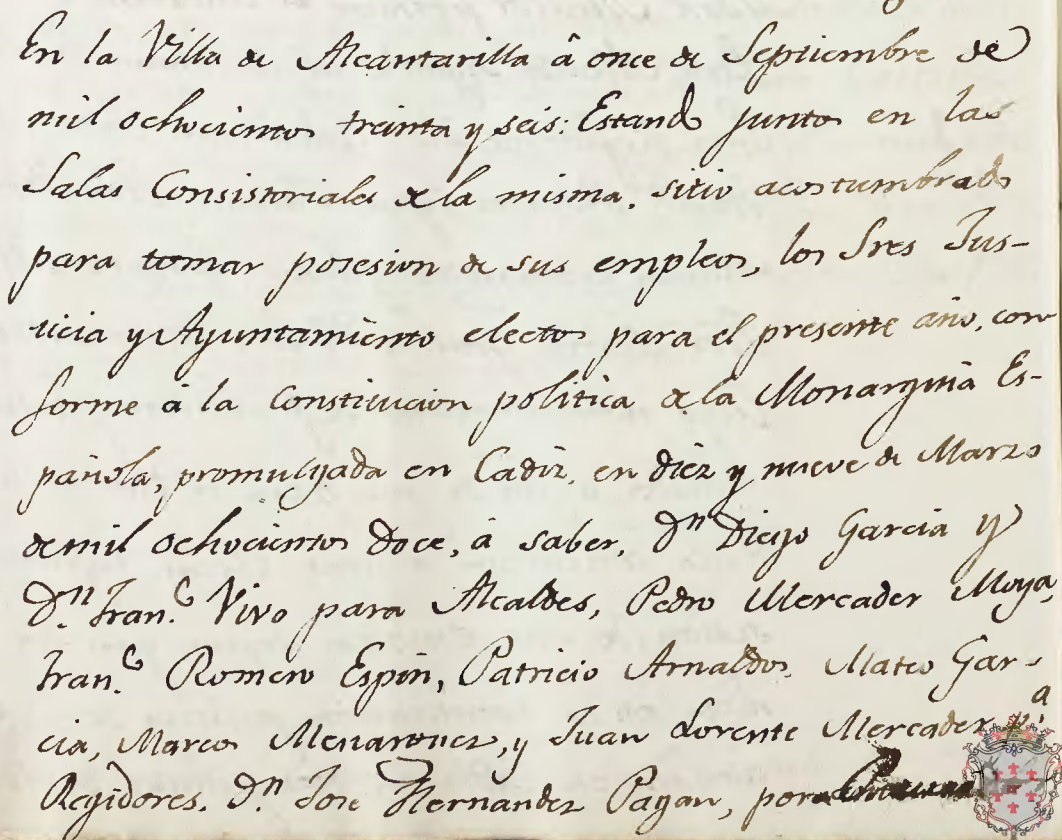 En la Villa de Alcantarilla â once de Septiembre de
mil ochocientos treinta y seis: Estando juntos en las
Salas Consistoriales de la misma, sitio acostumbrado
para tomar posesion de sus empleos, los Sres Jus-
ticia y Ayuntamiento electos para el presente año, con
forme à la Constitucion politica de la Monarquia Es-
pañola, promulgada en Cadiz, en diez y nueve de Marzo
de mil ochocientos doce, à saber, Dn Diego Garcia y
Dn Fran.co Vivo para Alcaldes, Pedro Mercader Moya,
Fran.co Romero Espin, Patricio Arnaldos, Mateo Gar-
cia, Marcos Menarguez, y Juan Lorente Mercader pa
Regidores. Dn Jose Hernandez Pagan, para